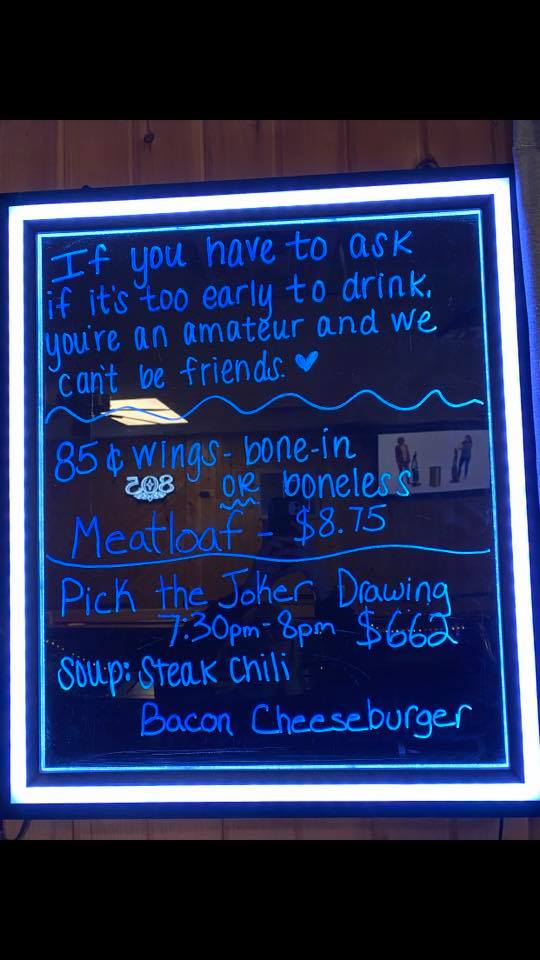 If you have to ask
if it's too early to drink,
you're an amateur and we
can't be friends. ♥
85¢ wings - bone-in
OR boneless
Meatloaf - $8.75
Pick the Joker Drawing
7:30pm - 8pm $662
Soup: Steak Chili
Bacon Cheeseburger